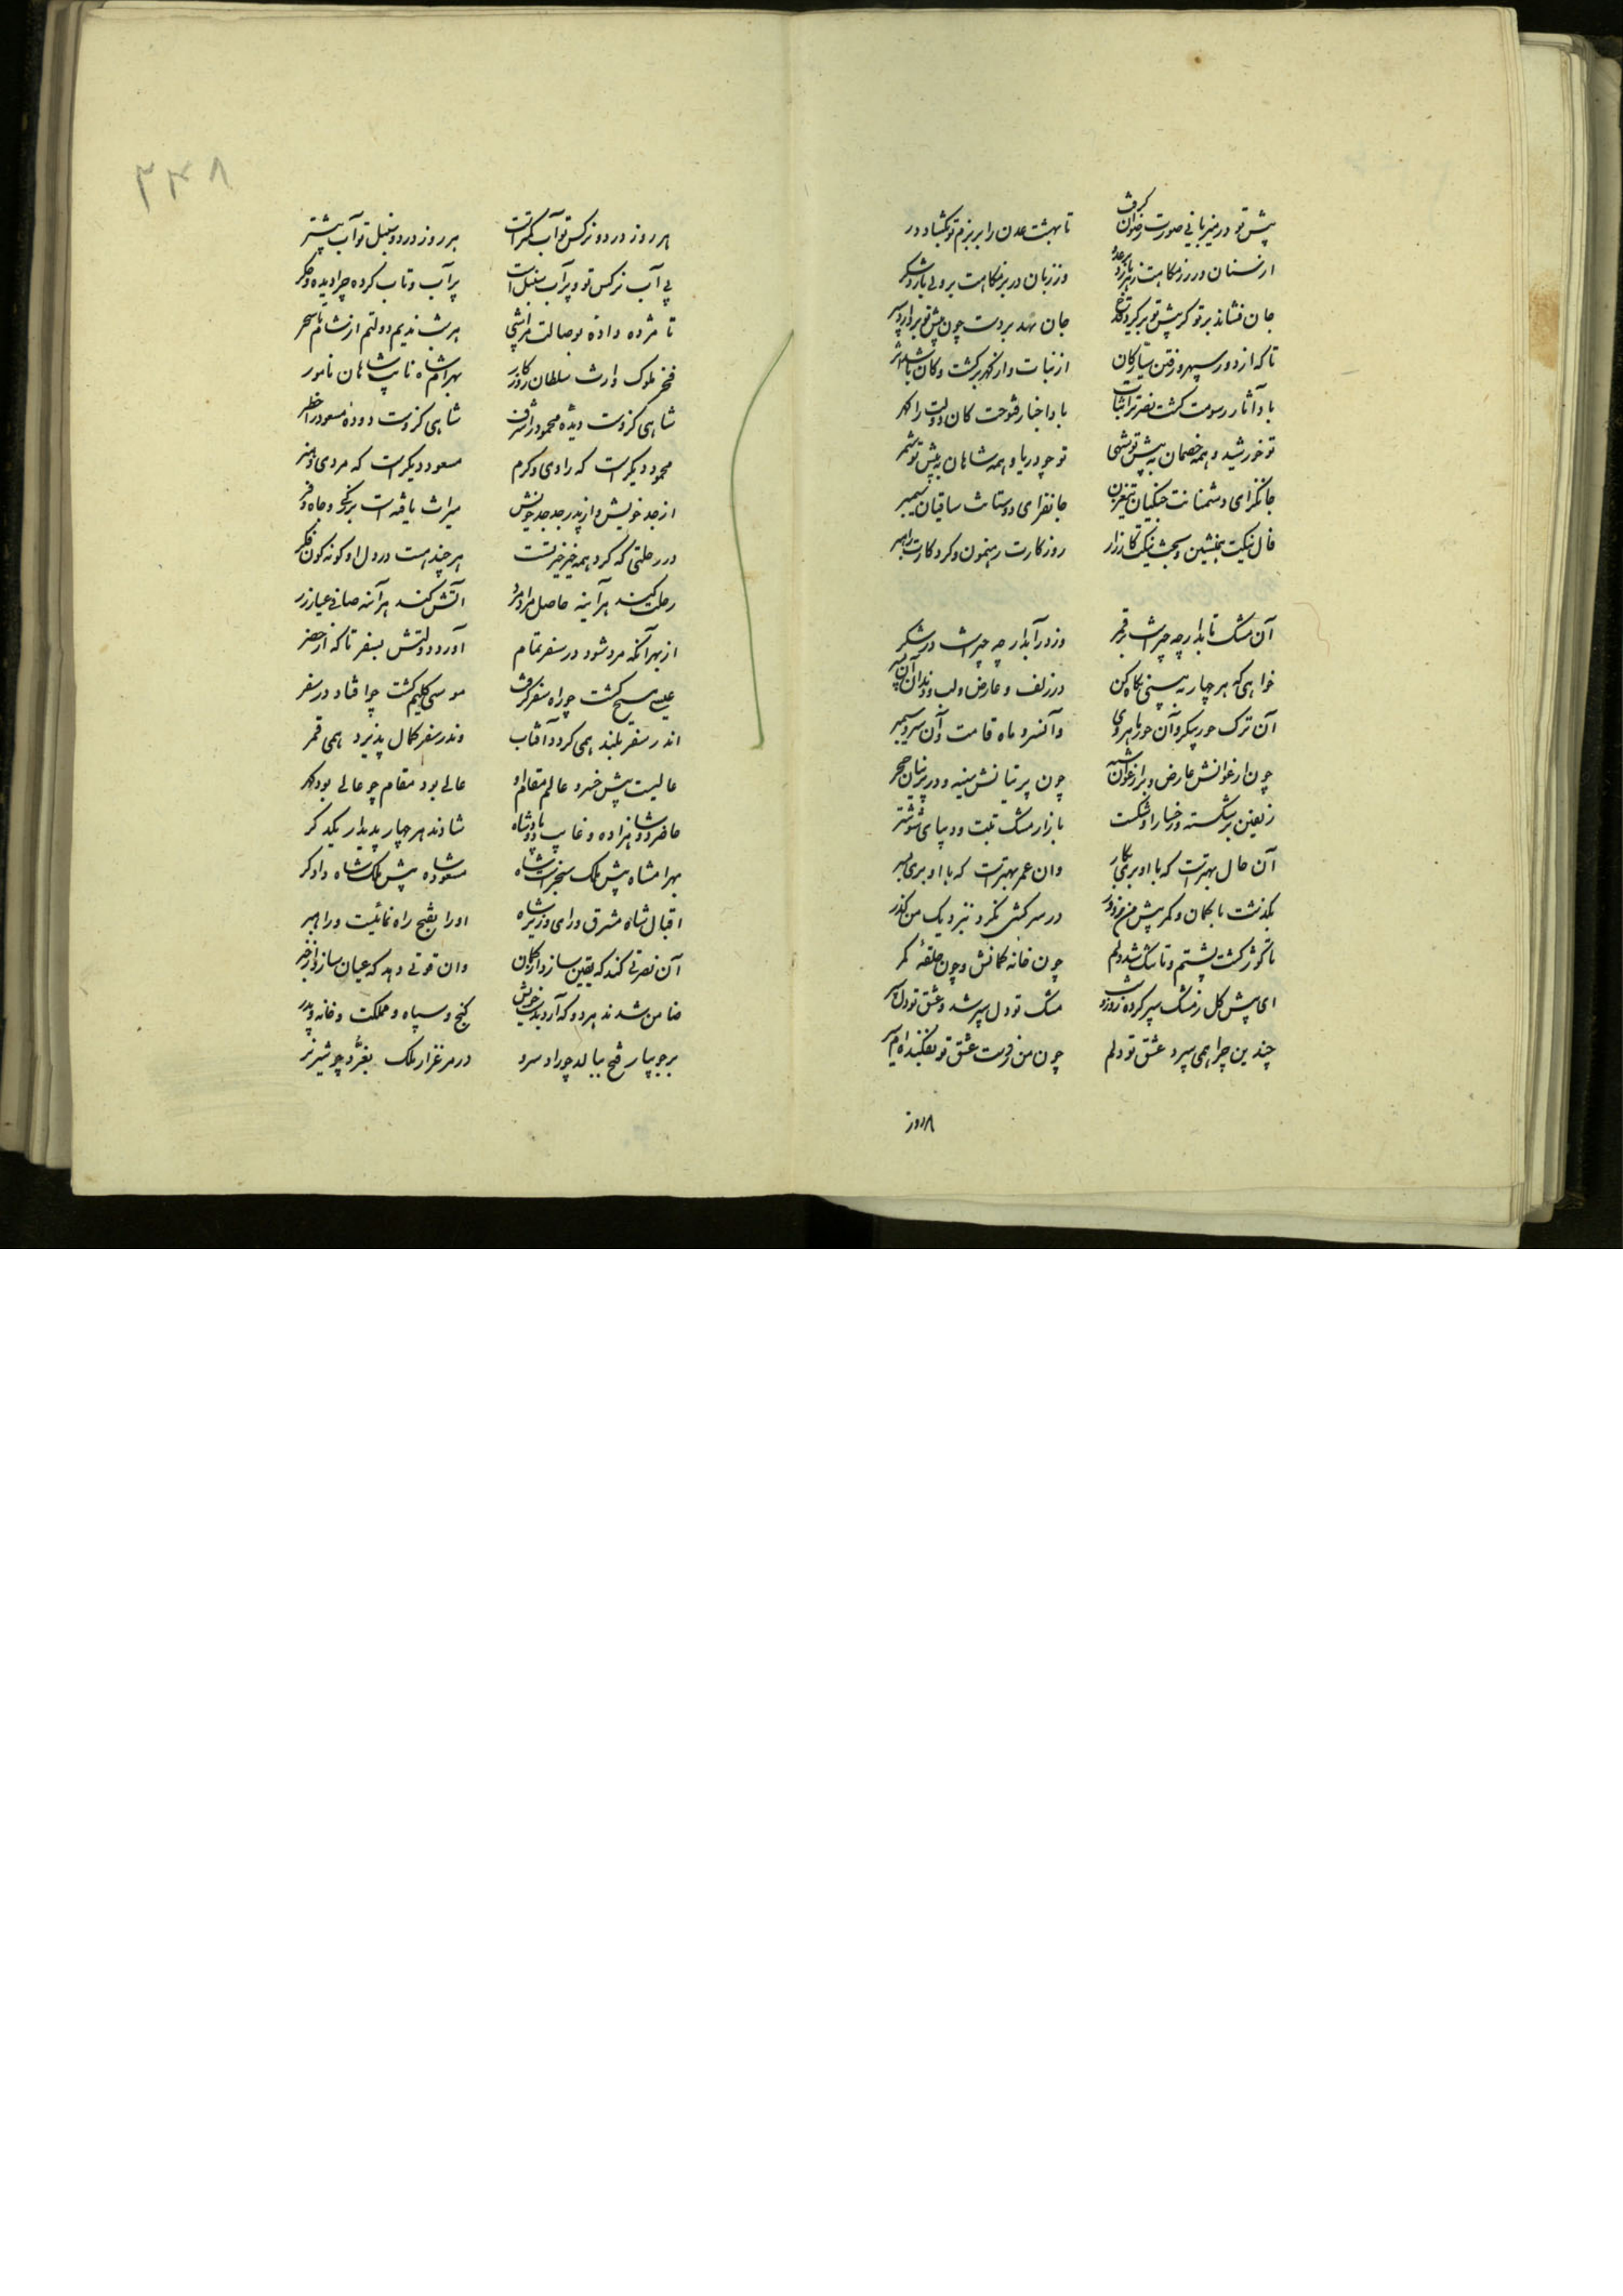 پیش تو در میزبانی صورت رضوان گرفت تا بهشت عدن را بر بزم تو بگشاد در
از سنان در رزمگاهت زهر بارد بر عدو وز زبان در بزمگاهت بر ولی بارد شکر
جان فشاند بر تو گر پیش تو برگیرد قدح جان نهد بر دست چون پیش تو بردارد سپر
تا که از دور سپهر و رفتن سیارگان از نبات و از گهر بر گشت و کان باشد اثر
باد آثار رسومت کشت نصرت را نبات باد اخبار فتوحت کان دولت را گهر
تو خورشید و همه خصمان به پیش تو سهی تو چو دریا و همه شاهان به پیش تو شمر
جانگزای دشمنانت جنگیان تیغ زن جانفزای دوستانت ساقیان سیمبر
فال نیکت همنشین و بخت نیکت کارزار روزگارت رهنمون و کردگارت راهبر
آن مشک تابدار چه چیز است بر قمر وز در آبدار چه چیز است در شکر
خواهی که هر چهار ببینی نگاه کن در زلف و عارض و لب و دندان آن پسر
آن ترک حور پیکر و آن حور ماهروی وآن سرو ماه قامت و آن سرو سیمبر
چون ارغوانش عارض و بر ارغوان شبه چون پرنیانش سینه و در پرنیان حجر
زلفین بر شکسته و رخسار او شکست بازار مشک تبت و دیبای شوشتر
آن حال بهتر است که با او بری بکار وان عمر بهتر است که با او بری بسر
بگذشت با کمان و کمر پیش من ز دور در سرکشی نکرد بنزدیک من گذر
تا گوژ گشت پشتم و تا تنگ شد دلم چون خانه کمانش و چون حلقه کمر
ای پیش گل ز مشک سپر کرده روز و شب مشک تو دل سپر شد و عشق تو دل سپر
چندین چرا همی سپرد عشق تو دلم چون من ز دست عشق تو بفکنده‌ام سپر
هر روز
۳۳۸
هر روز در دو نرگس تو آب کمتر است هر روز در دو سنبل تو آب بیشتر
بی آب نرگس تو و پر آب سنبل است پر آب و تاب کرده چرا دیده و جگر
تا مژده داده بوصالت مرا شبی هر شب ندیم دولتم از شام تا سحر
فخر ملوک وارث سلطان روزگار بهرامشاه نایب شاهان نامور
شاهی کزوست دیده محمود را شرف شاهی کزوست دوده مسعود را خطر
محمود دیگر است که رادی و کرم مسعود دیگر است که مردی و هنر
از جد خویش و از پدر جد جد خویش میراث یافته است بزرگی و جاه و فر
در رحلتی که کرد همه خیر خیر تست هر چند هست در دل او گونه گون فکر
رحلت کند هر آینه حاصل مراد مرد آتش کند هر آینه صافی عیار زر
از بهر آنکه مرد شود در سفر تمام آورد دولتش بسفر تا که از حضر
عیسی مسیح گشت چو راه سفر گرفت موسی کلیم گشت چو افتاد در سفر
اندر سفر بلند همی گردد آفتاب وندر سفر کمال پذیرد همی قمر
عالیست پیش خسرو عالم مقام او عالی بود مقام چو عالی بود گهر
حاضر دو شاهزاده و غایب دو پادشاه شادند هر چهار بدیدار یکدگر
بهرامشاه پیش ملک سنجر است شاه مسعود شاه پیش ملکشاه دادگر
اقبال شاه مشرق و رای وزیر شاه او را بفتح راه نمائیست و راهبر
آن نصرتی کند که یقین سازد از گمان وان قوتی دهد که عیان سازد از خبر
ضامن شدند هر دو که آرد بدست خویش گنج و سپاه و مملکت و خانه و پدر
بر جویبار فتح ببالد چو راد سرو در مرغزار ملک بغرّد چو شیر نر